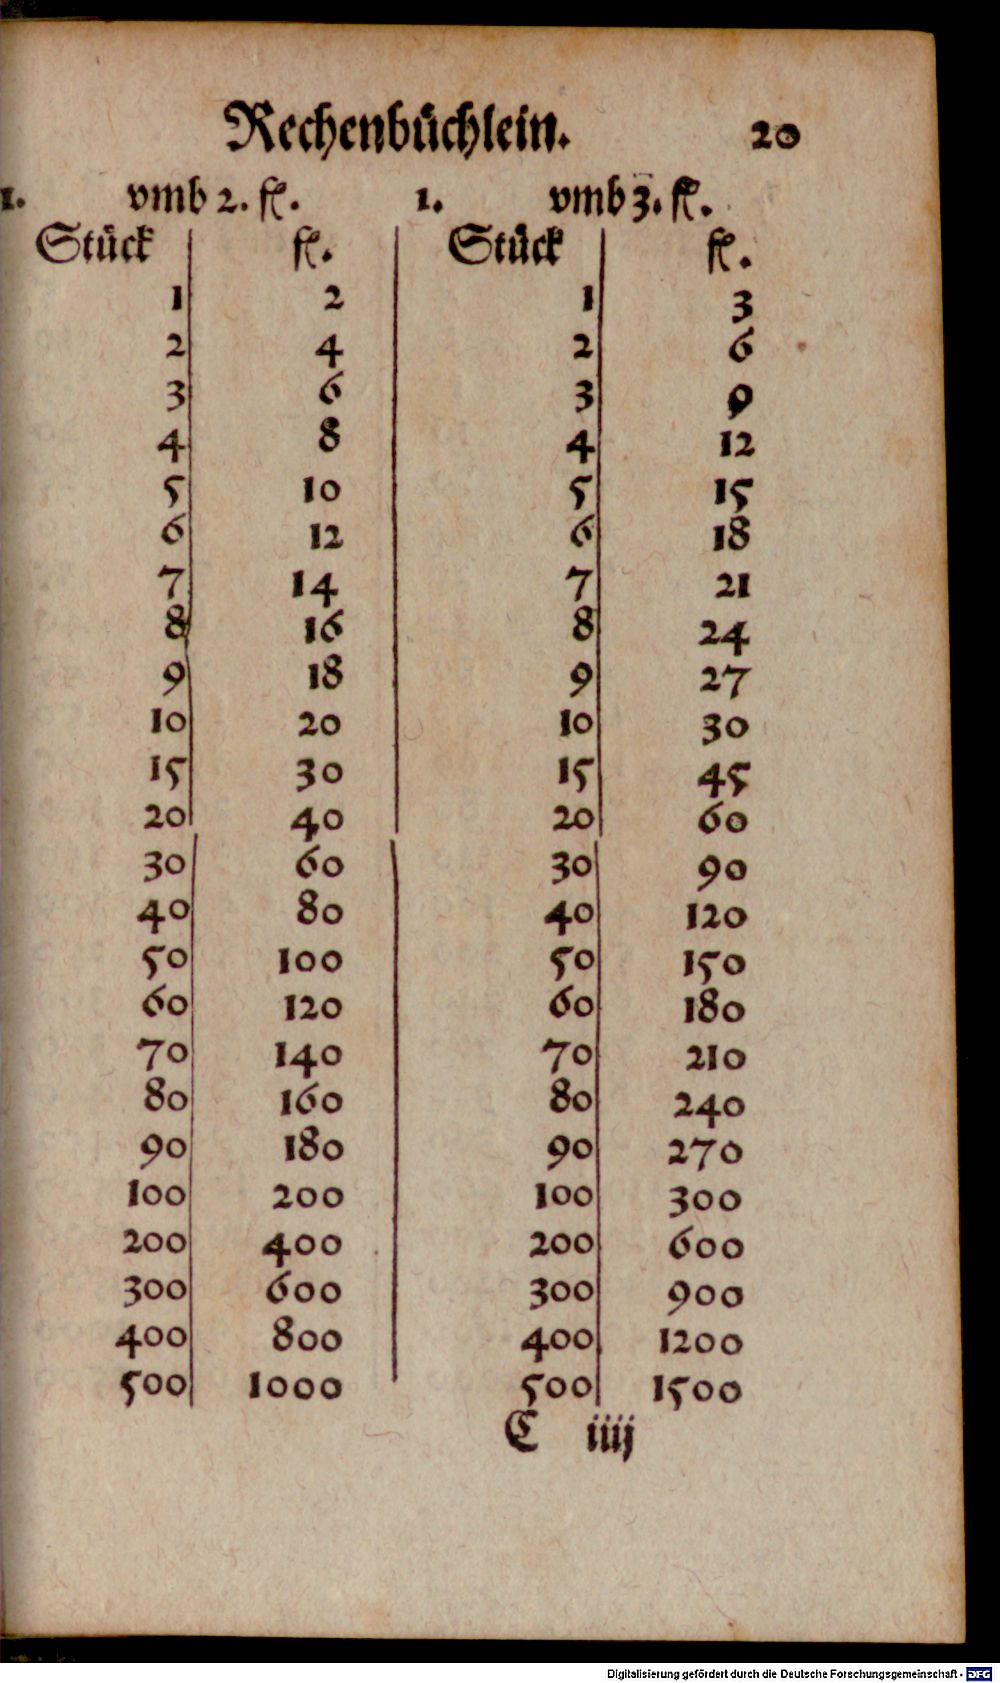 Rechenbüchlein. 20
1. vmb 2. fl. 1. vmb 3. fl.
Stück fl. Stück fl.
1 2 1 3
2 4 2 6
3 6 3 9
4 8 4 12
5 10 5 15
6 12 6 18
7 14 7 21
8 16 8 24
9 18 9 27
10 20 10 30
15 30 15 45
20 40 20 60
30 60 30 90
40 80 40 120
50 100 50 150
60 120 60 180
70 140 70 210
80 160 80 240
90 180 90 270
100 200 100 300
200 400 200 600
300 600 300 900
400 800 400 1200
500 1000 500 1500
C iiij
Digitalisierung gefördert durch die Deutsche Forschungsgemeinschaft - DFG